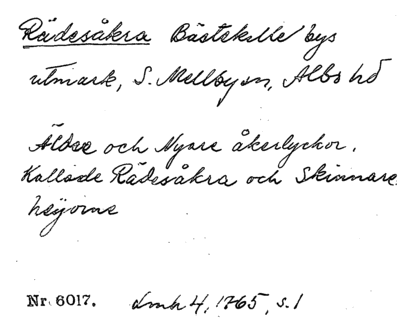 Rädesåkra Bästekille bys
utmark, S. Mellby sn, Albo hd
Äldre och Nyare åkerlyckor.
Kallade Rädesåkra och Skinnare
höyorne
Nr 6017. Lmh 4, 1765, s. 1